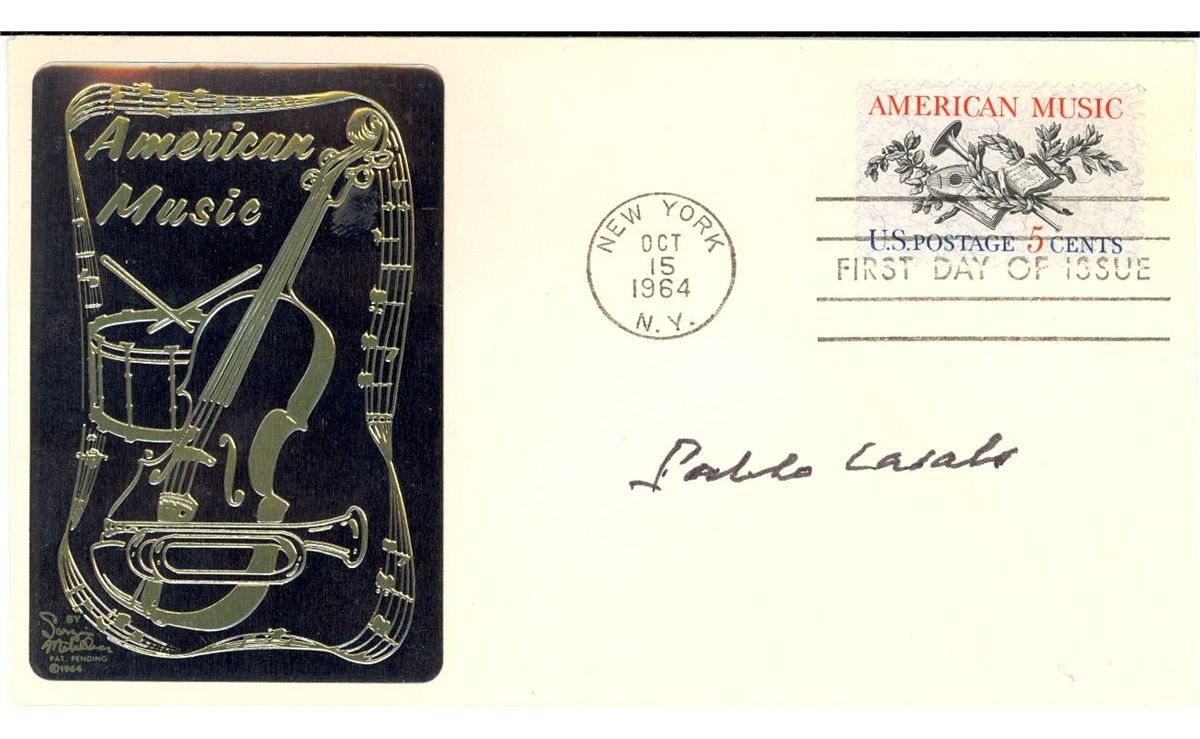 American
Music
BY
PAT. PENDING
©1964
NEW YORK
OCT
15
1964
N.Y.
AMERICAN MUSIC
U.S. POSTAGE 5 CENTS
FIRST DAY OF ISSUE
Pablo Casals